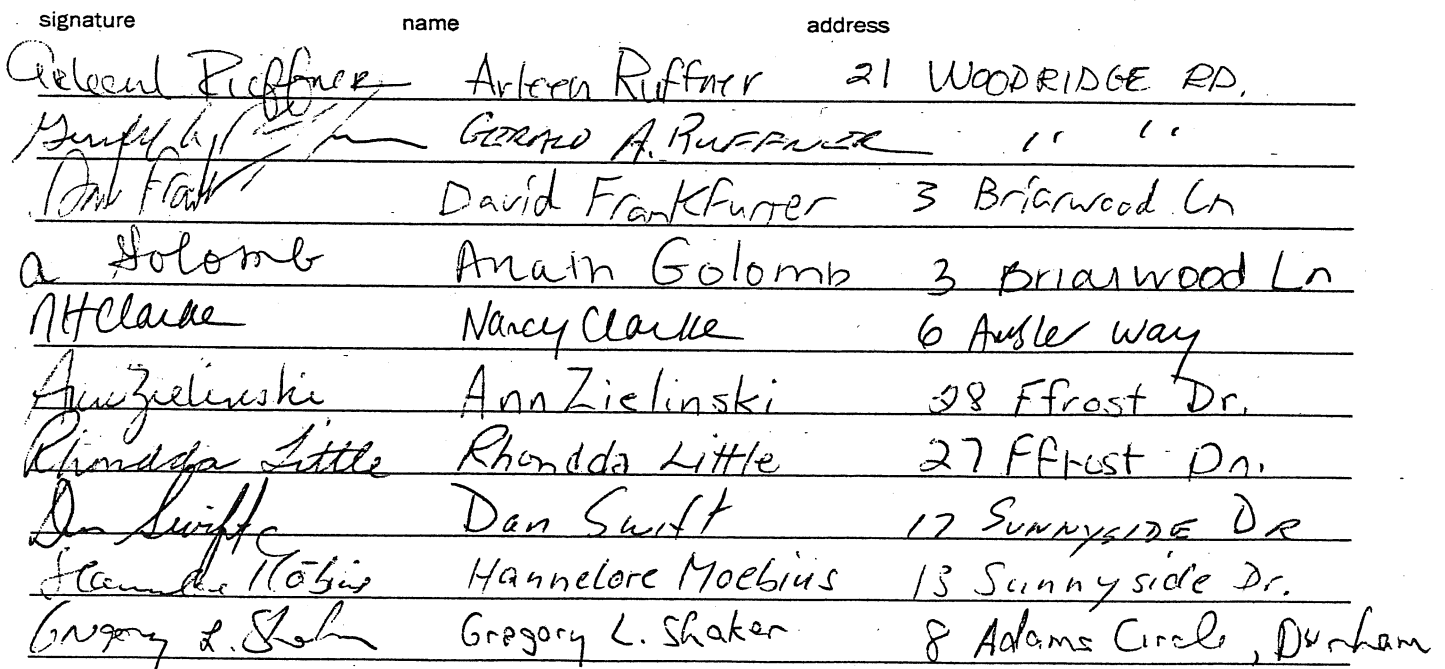 signature name address
Arleen Ruffner Arleen Ruffner 21 WOODRIDGE RD.
GERALD A. RUFFNER " "
David Frankfurter 3 Briarwood Ln
a Golomb Anath Golomb 3 Briarwood Ln
NHClarke Nancy Clarke 6 Ambler Way
Ann Zielinski Ann Zielinski 28 Ffrost Dr.
Rhondda Little Rhondda Little 27 Ffrost Dr.
Dan Swift Dan Swift 17 SUNNYSIDE DR
Hannelore Möbius Hannelore Moebius 13 Sunnyside Dr.
Gregory L. Shaker Gregory L. Shaker 8 Adams Circle, Durham